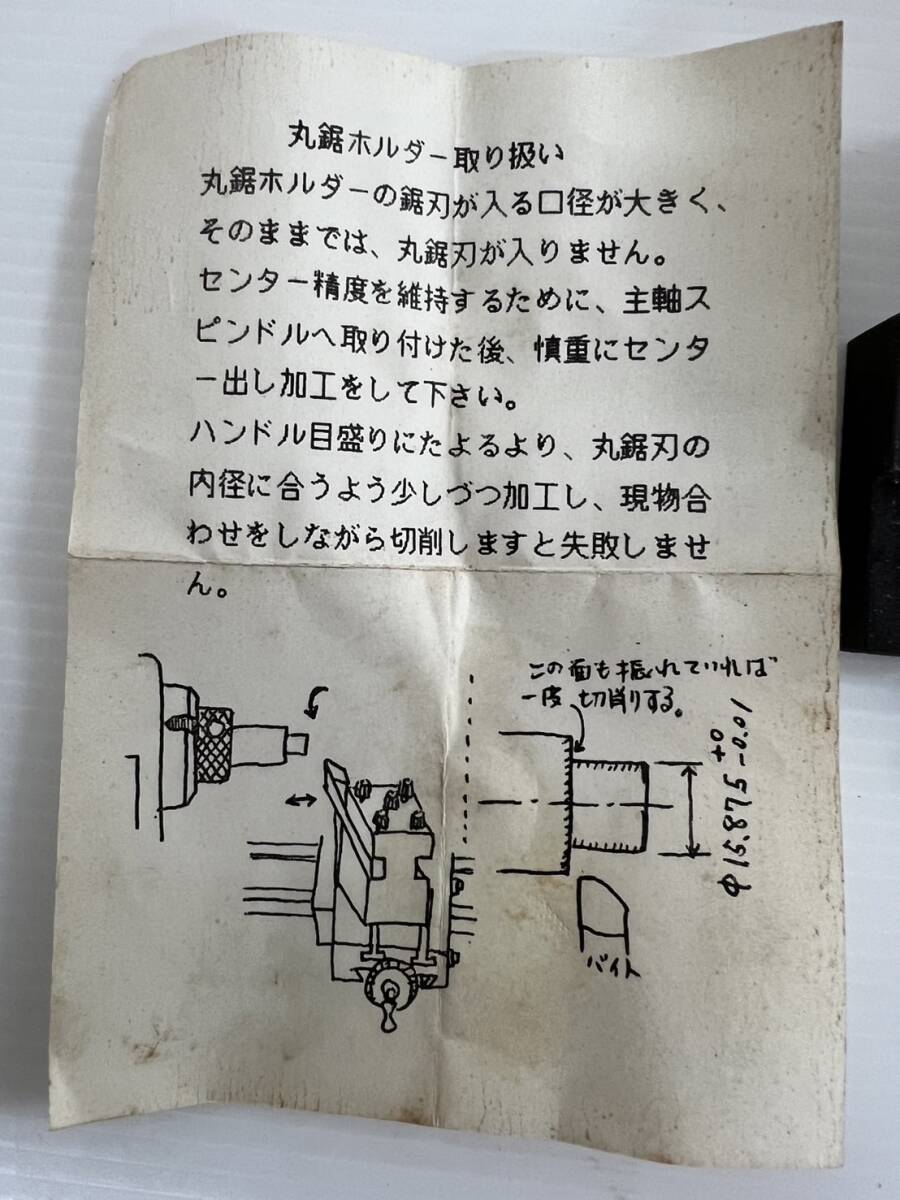 丸鋸ホルダー取り扱い
丸鋸ホルダーの鋸刃が入る口径が大きく、
そのままでは、丸鋸刃が入りません。
センター精度を維持するために、主軸ス
ピンドルへ取り付けた後、慎重にセンタ
ー出し加工をして下さい。
ハンドル目盛りにたよるより、丸鋸刃の
内径に合うよう少しづつ加工し、現物合
わせをしながら切削しますと失敗しませ
ん。
この面も振れていれば
一度切削りする。
φ15.875 +0 -0.01
バイト